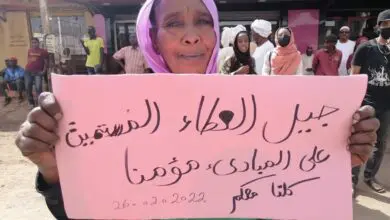 جيل العطاء المستميت
على المبادئ مؤمنا
كلنا معكم
26-02-2022